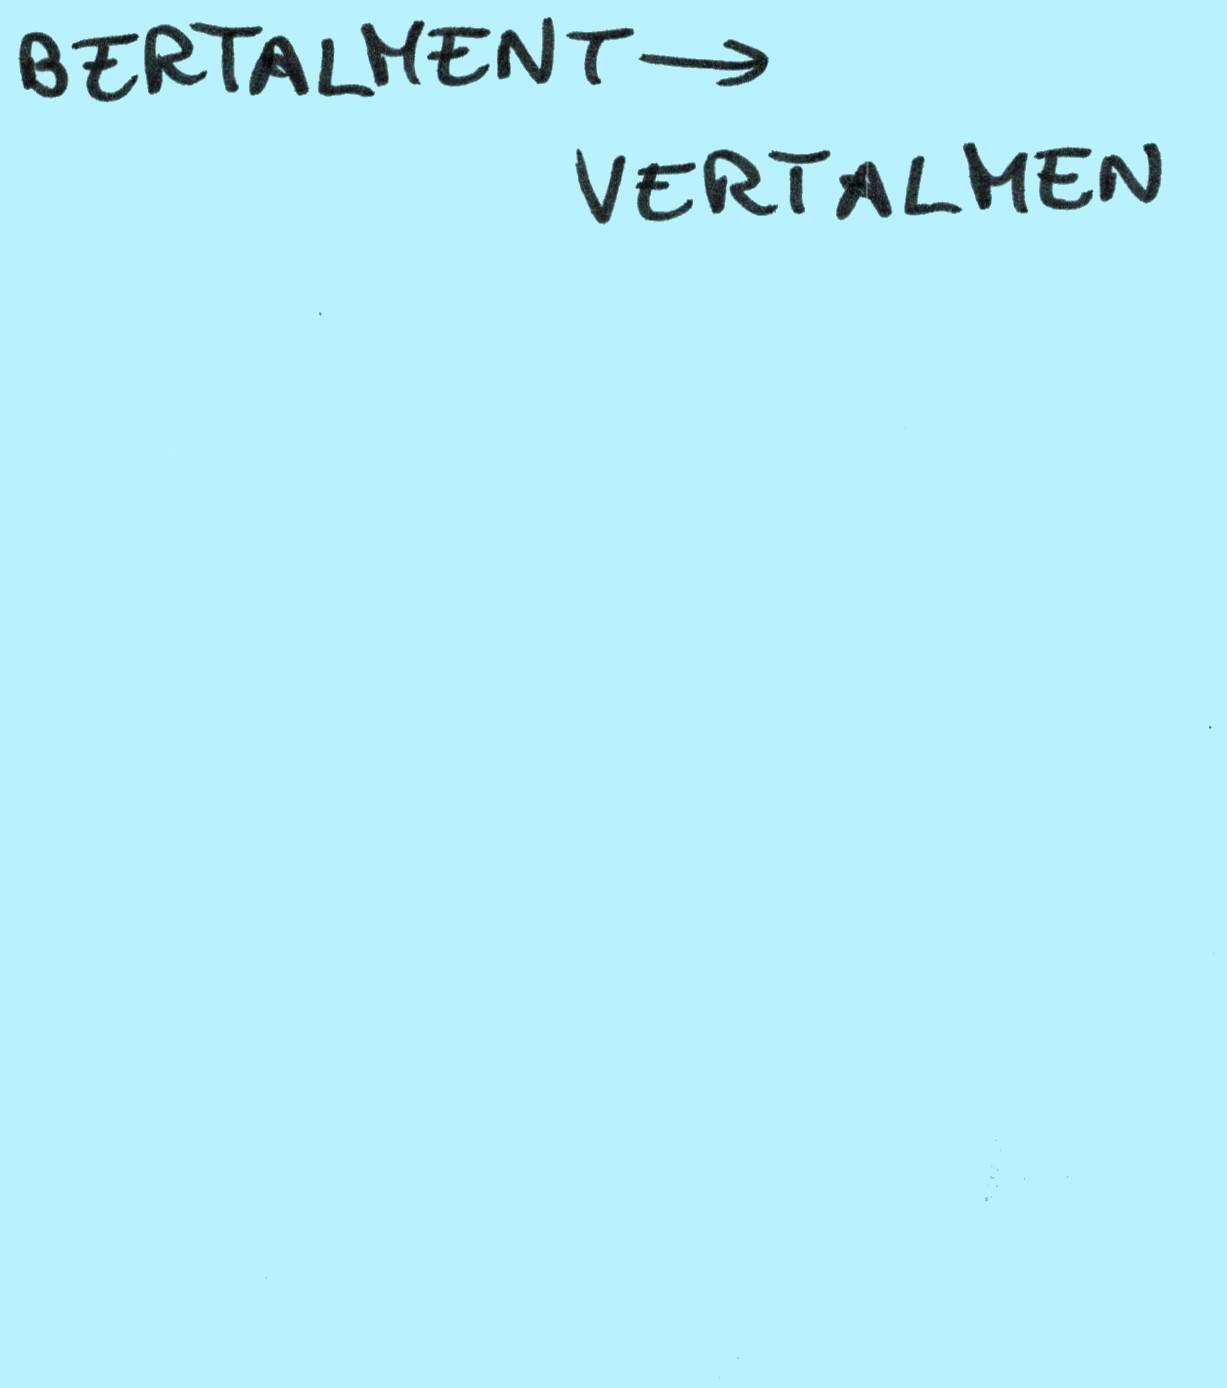 BERTALMENT →
VERTALMEN